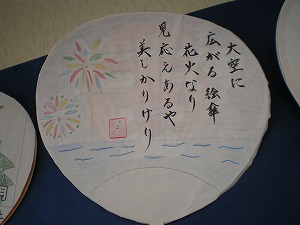 大空に
広がる絵傘
花火なり
見応えあるや
美しかりけり